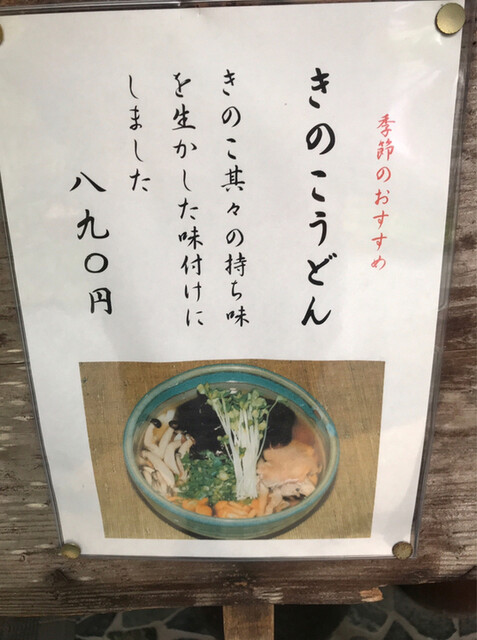 季節のおすすめ
きのこうどん
きのこ其々の持ち味
を生かした味付けに
しました
八九〇円